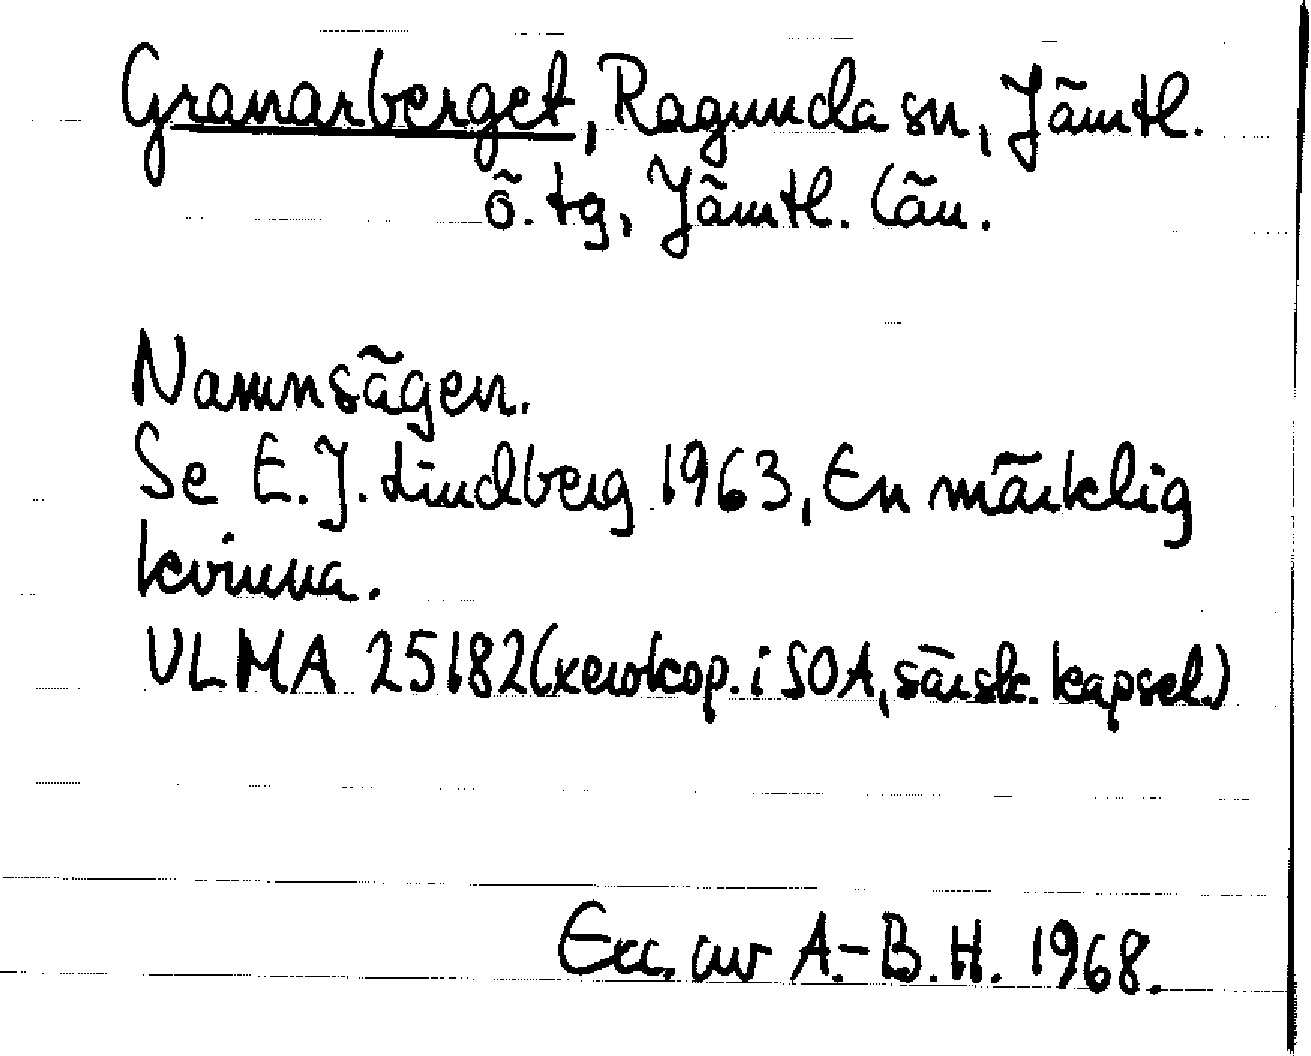 Granarberget, Ragunda sn, Jämtl.
ö. tg, Jämtl. län.
Namnsägen.
Se E. J. Lindberg 1963, En märklig
kvinna.
ULMA 25182 (xerokop. i SOA, särsk. kapsel.)
Exc. av A.-B. H. 1968.